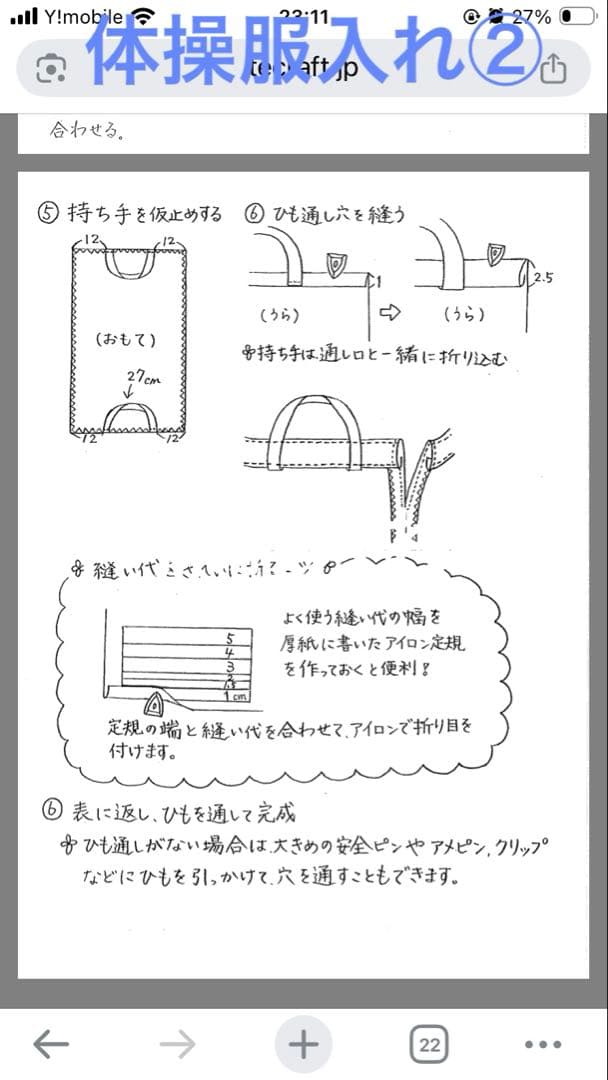 Y!mobile
23:11
27%
体操服入れ②
合わせる。
⑤ 持ち手を仮止めする
12 12
(おもて)
27cm
12 12
⑥ ひも通し穴を縫う
1
2.5
(うら)
⇨
(うら)
持ち手は、通し口と一緒に折り込む
縫い代をきれいに折る
よく使う縫い代の幅を
厚紙に書いたアイロン定規
を作っておくと便利!
5
4
3
2
1.5
1cm
定規の端と縫い代を合わせて、アイロンで折り目を
付けます。
⑥ 表に返し、ひもを通して完成
ひも通しがない場合は、大きめの安全ピンやアメピン、クリップ
などにひもを引っかけて、穴を通すこともできます。
22